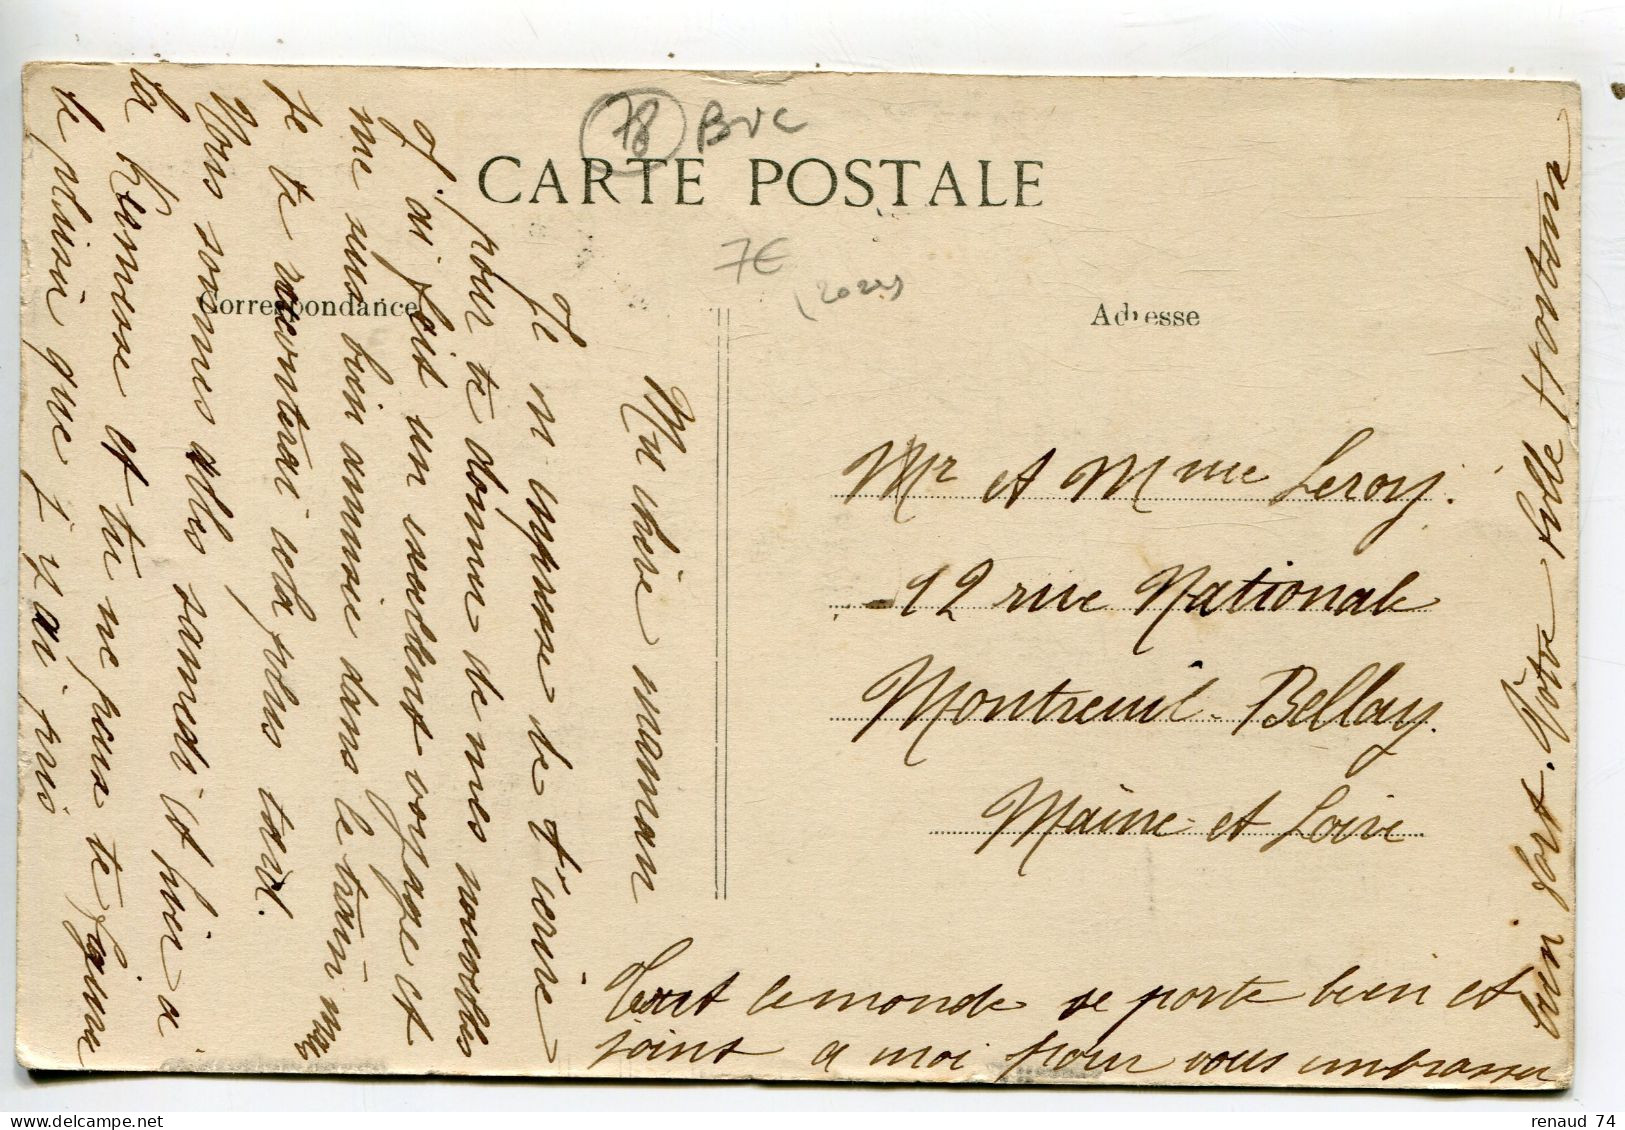 78 BUC
CARTE POSTALE
7€
(2022)
Correspondance
Adresse
Ma chère maman
Je m'empresse de t'écrire
pour te donner de mes nouvelles
J'ai fait un excellent voyage et
me suis bien amusée dans le train mais
je te raconterai cela plus tard.
Nous sommes allés samedi et hier a
la Kermesse et tu ne peus te figurer
le plaisir que j'y ai pris
Mr et Mme Leroy.
12 rue Nationale
Montreuil-Bellay.
Maine et Loire
Tout le monde se porte bien et
joint a moi pour vous embrasser
bien fort. Votre fille
renaud 74